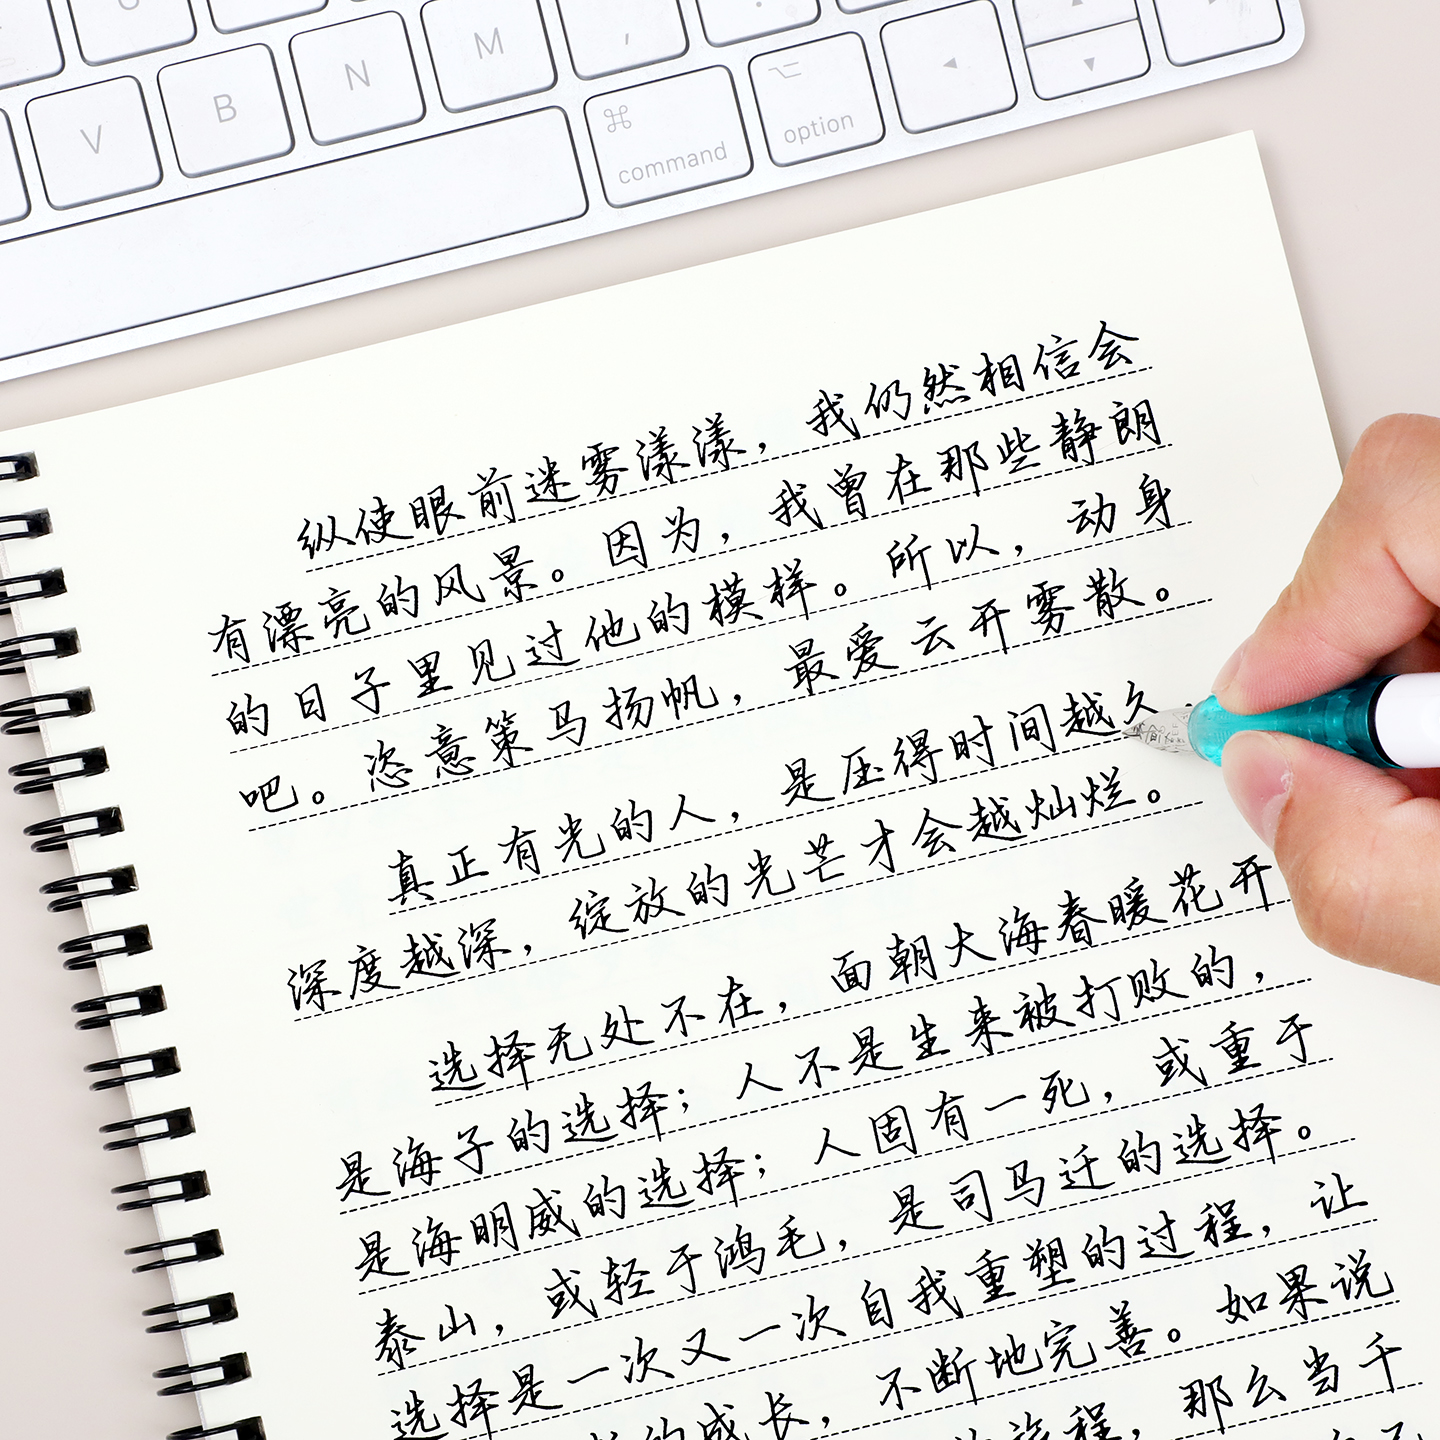 V B N M ,
command option
纵使眼前迷雾漾漾，我仍然相信会
有漂亮的风景。因为，我曾在那些静朗
的日子里见过他的模样。所以，动身
吧。恣意策马扬帆，最爱云开雾散。
真正有光的人，是压得时间越久
深度越深，绽放的光芒才会越灿烂。
选择无处不在，面朝大海春暖花开
是海子的选择；人不是生来被打败的，
是海明威的选择；人固有一死，或重于
泰山，或轻于鸿毛，是司马迁的选择。
选择是一次又一次自我重塑的过程，让
的成长，不断地完善。如果说
旅程，那么当千